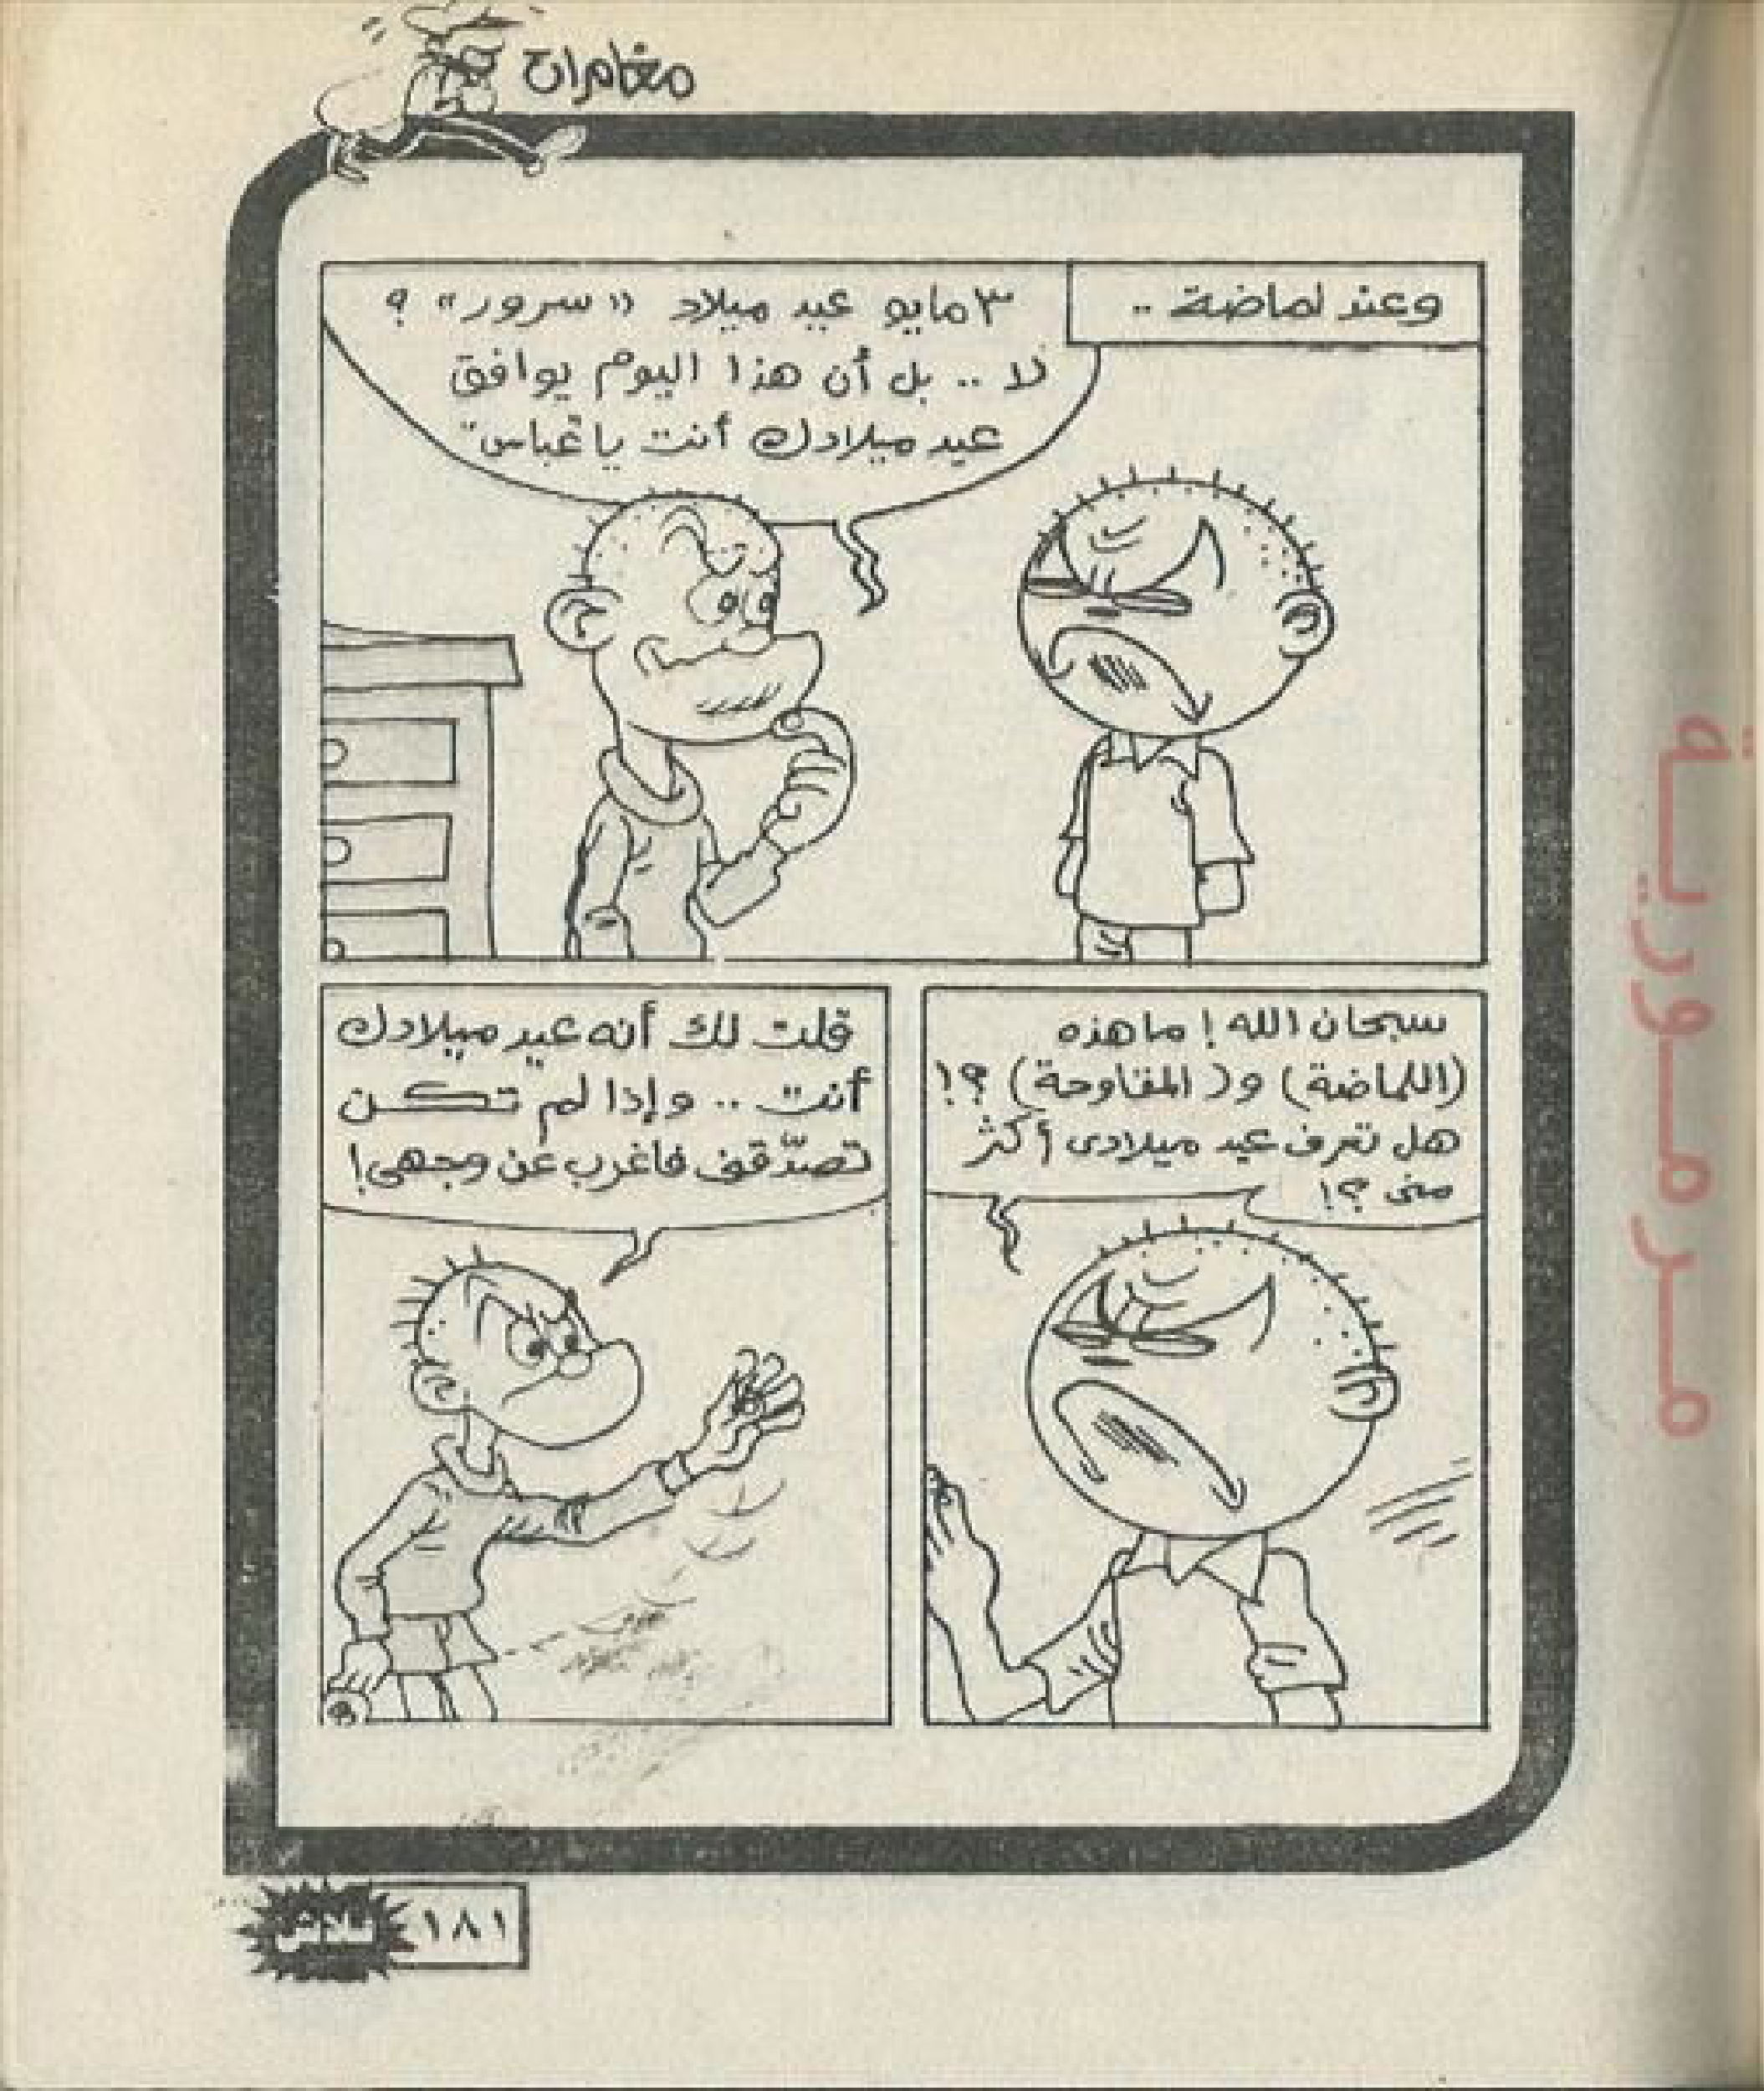 مغامرات
وعند لماضة ..
٣ مايو عيد ميلاد «سرور» ؟
لا .. بل أن هذا اليوم يوافق
عيد ميلادك أنت يا عباس"
سبحان الله ! ما هذه
(اللماضة) و( المقاوحة) ؟!
هل تعرف عيد ميلادى أكثر
منى ؟!
قلت لك أنه عيد ميلادك
أنت .. وإذا لم تكن
تصدّقنى فاغرب عن وجهى!
١٨١
فلاش
مرمورية